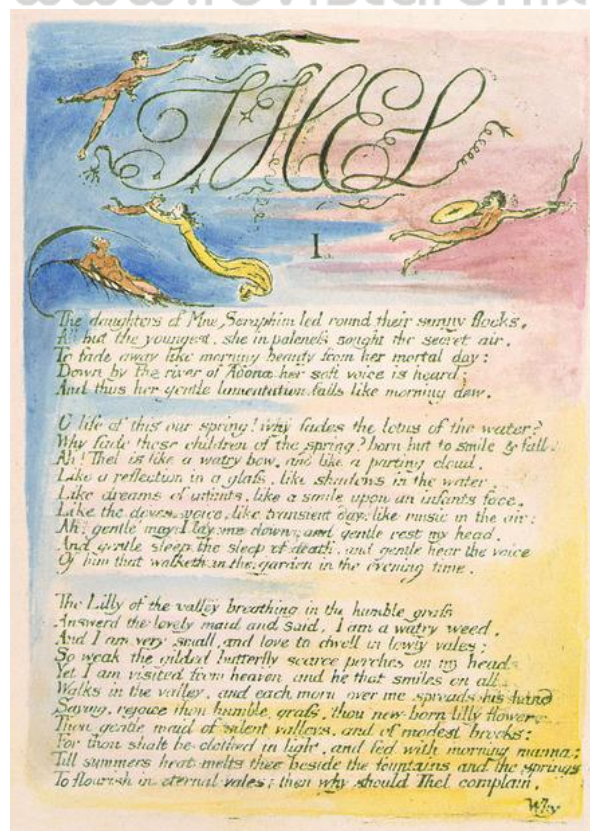 THEL
I
The daughters of Mne Seraphim led round their sunny flocks,
All but the youngest, she in paleneſs sought the secret air,
To fade away like morning beauty from her mortal day:
Down by the river of Adona her soft voice is heard:
And thus her gentle lamentation falls like morning dew.
O life of this our spring! why fades the lotus of the water?
Why fade these children of the spring? born but to smile & fall.
Ah! Thel is like a watry bow, and like a parting cloud.
Like a reflection in a glaſs, like shadows in the water.
Like dreams of infants, like a smile upon an infants face,
Like the doves voice, like transient day, like music in the air:
Ah! gentle may I lay me down, and gentle rest my head.
And gentle sleep the sleep of death, and gentle hear the voice
Of him that walketh in the garden in the evening time.
The Lilly of the valley breathing in the humble graſs
Answerd the lovely maid and said, I am a watry weed,
And I am very small, and love to dwell in lowly vales;
So weak the gilded butterfly scarce perches on my head
Yet I am visited from heaven and he that smiles on all
Walks in the valley, and each morn over me spreads his hand
Saying, rejoice thou humble graſs, thou new-born lilly flower,
Thou gentle maid of silent valleys, and of modest brooks:
For thou shalt be clothed in light, and fed with morning manna:
Till summers heat melts thee beside the fountains and the springs
To flourish in eternal vales: then why should Thel complain,
Why